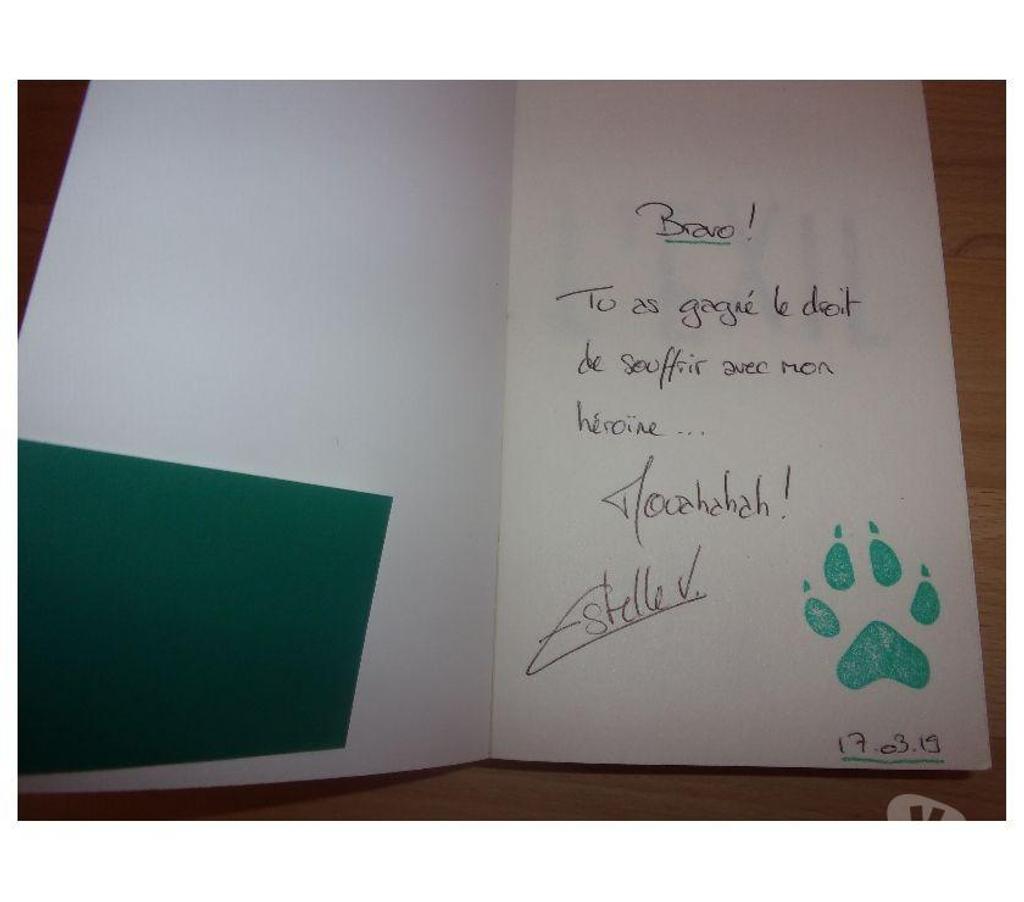 Bravo !
Tu as gagné le droit
de souffrir avec mon
héroïne ...
Mouahahah !
Estelle V.
17.03.19
V